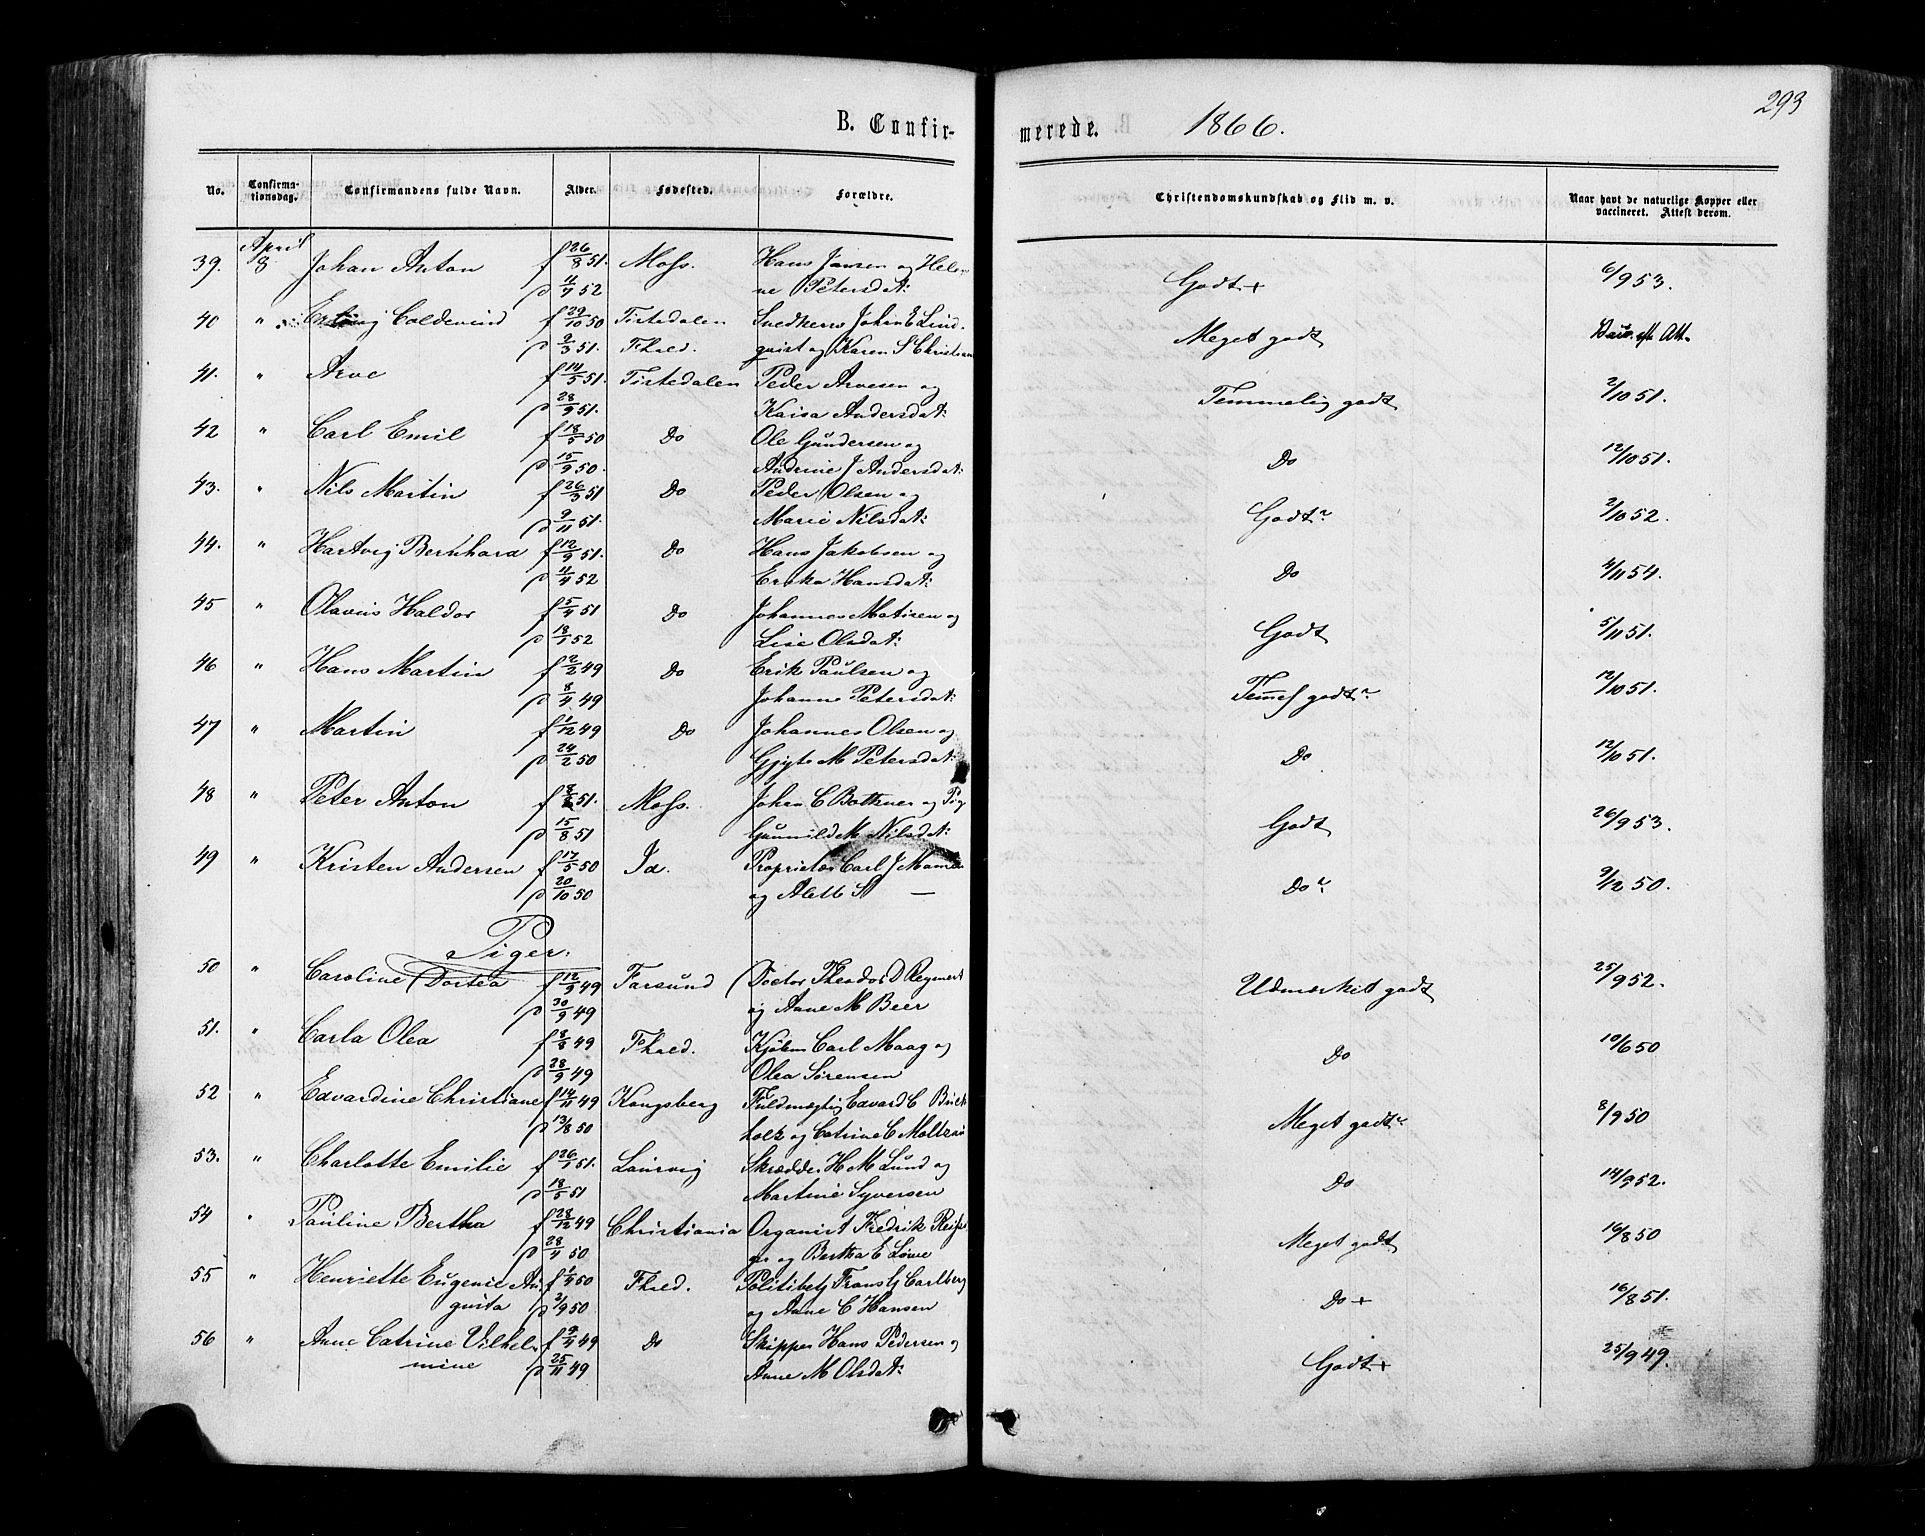 293
B. Confirmerede. 1866.
No. Confirmationsdag. Confirmandens fulde Navn. Alder. Fødested. Forældre. Christendomskundskab og Flid m. v. Naar havt de naturlige Kopper eller vaccineret. Attest derom.
39. April 8. Johan Anton f 26/8 51. Moss. Hans Jansen og Hele- Godt+ 6/9 53.
p 4/4 52 ne Petersdat:
40 " Coldevind f 29/10 50 Tistedalen Snedkersv Johan E Lind- Meget godt
p 2/3 51. Fhald. quist og Karen S Christian
41. " Arve f 14/5 51. Tistedalen Peder Arvesen og Temmelig godt 2/10 51.
p 28/9 51. Kaisa Andersdat:
42 " Carl Emil f 18/5 50 Do Ole Gundersen og Do 12/10 51.
p 15/9 50. Andrine J Andersdat:
43. " Nils Martin f 26/3 51 Do Peder Olsen og Godt 2/10 52.
p 9/11 51. Marie Nilsdat:
44. " Hartvig Bernhard f 12/9 51. Do Hans Jakobsen og Do 4/11 54.
p 4/4 52 Erika Hansdat:
45 " Olavus Haldor f 5/4 51 Do Johannes Matisen og Godt 5/11 51.
p 18/1 52 Lise Olsdat:
46 " Hans Martin f 2/2 49 Do Erik Paulsen og Temel godt 12/10 51.
p 8/4 49 Johanne Petersdat:
47 " Martin f 1/12 49 Do Johannes Olsen og Do 12/10 51.
p 24/2 50 M Petersdat:
48 " Peter Anton 51. Moss. Johan C Bothner og Pig Godt 26/9 53.
p 15/8 51 Gunnild M Nilsdat:
49 " Kristen Andersen f 17/5 50 Id. Proprietær Carl J Do 9/12 50.
p 20/10 50 og Alette S —
Piger.
50 " Caroline Dortea f 12/9 49 Farsund Doctor Theodor D Udmerket godt 25/9 52.
p 30/9 49 og Anne M Beer
51. " Carla Olea f 8/8 49 Fhald. Kjøbm Carl Maag og Do 10/6 50
p 28/9 49 Olea Sørensen
52 " Edvardine Christiane f 14/11 49 Kongsberg Fuldmægtig Edvard C Meget godt 8/9 50
p 13/8 50 holz og Catrine C
53. " Charlotte Emilie f 26/1 51. Laurvig Skrædder H M Lund og Do 14/9 52.
p 18/5 51 Martine Syversen
54 " Pauline Bertha f 28/12 49 Christiania Organist Fredrik Meget godt 16/8 50
p 28/4 50 ger og Bertha E Løwe
55 " Henriette Eugenie Au- f 1/4 50 Fhald. Politibetj Frans G Carlberg Do + 16/8 51.
gusta p 2/9 50 og Anne C Hansen
56 " Anne Catrine Vilhel- f 9/4 49 Do Skipper Hans Pedersen og Godt + 25/9 49.
mine p 25/11 49 Anne M Olsdat: